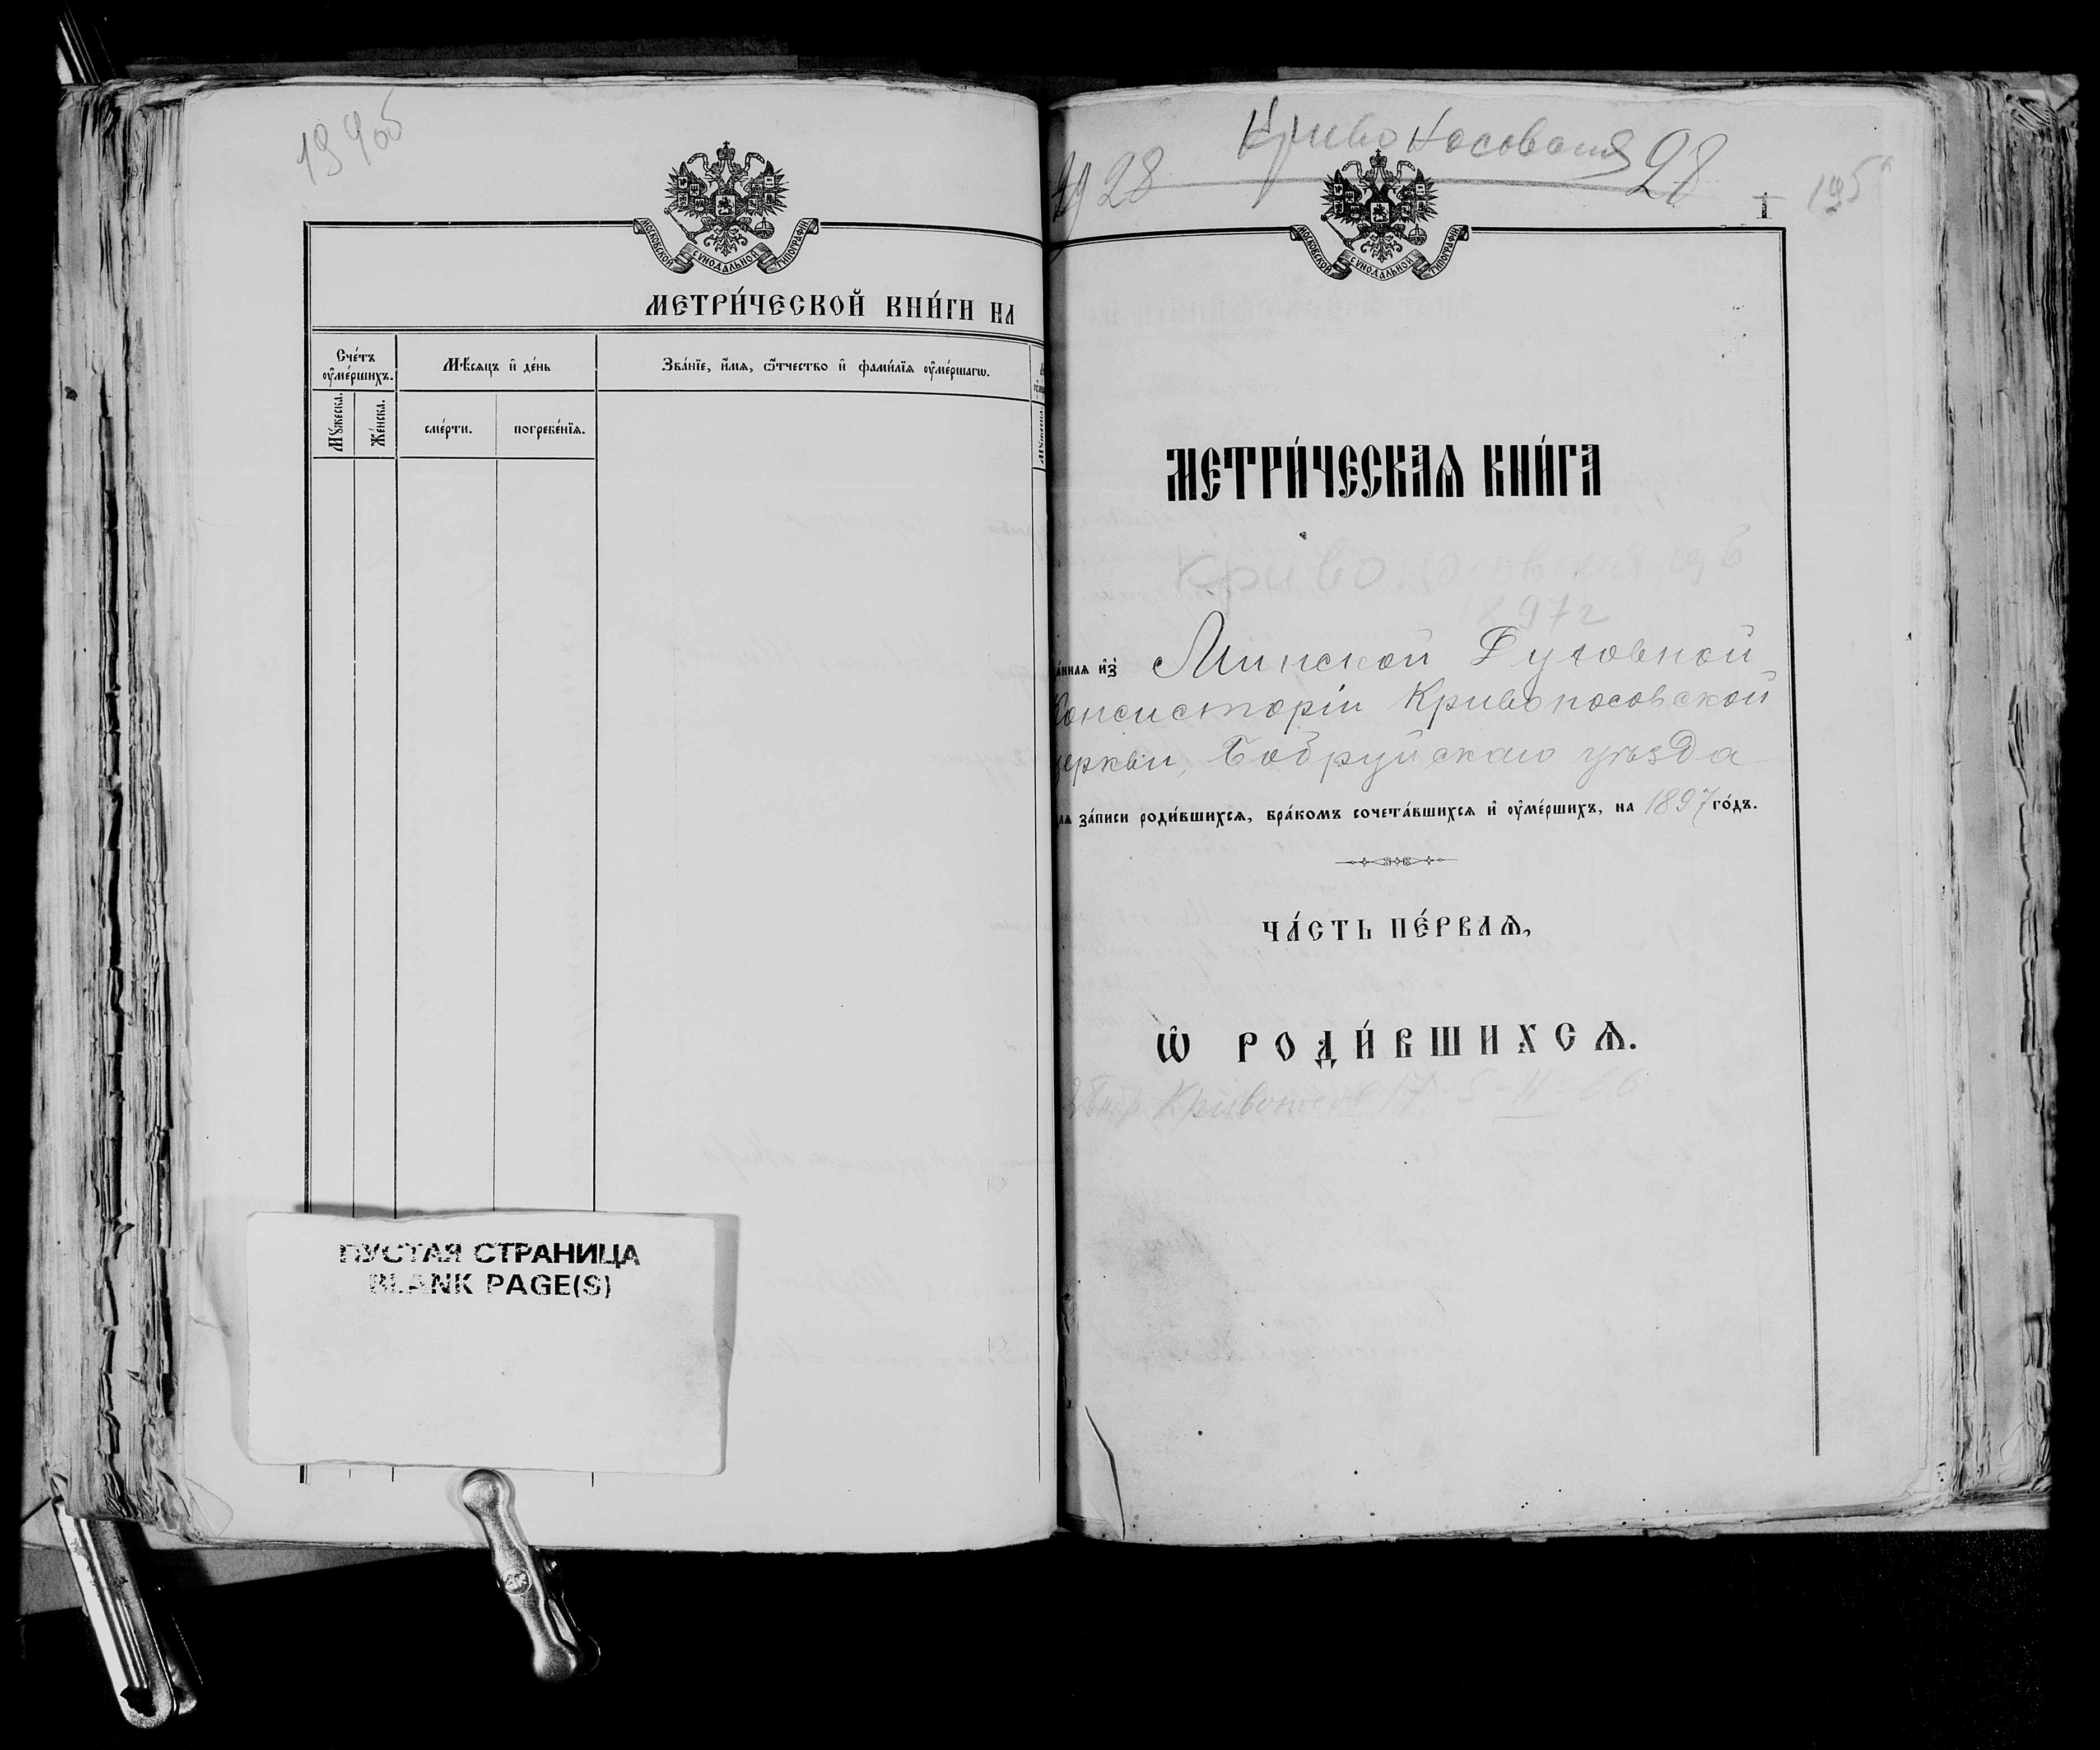 194об
МОСКОВСКОЙ СѴНОДАЛЬНОЙ ТИПОГРАФІИ
МЕТРИ́ЧЕСКОЙ КНИ́ГИ НА
Сче́тъ оу҆ме́ршихъ.
Мѣ́сяцъ и҆ де́нь
Зва́нїе, и҆́мѧ, ѻ҆́тчество и҆ фами́лїѧ оу҆ме́ршагѡ.
Мꙋ́жеска.
Же́нска.
сме́рти.
погребе́нїѧ.
ПУСТАЯ СТРАНИЦА
BLANK PAGE(S)
Кривоносовская
28
28
1
195
МОСКОВСКОЙ СѴНОДАЛЬНОЙ ТИПОГРАФІИ
МЕТРИ́ЧЕСКАѦ КНИ́ГА
Кривоносовская
1897г
а́ннаѧ и҆з̾ Минской Духовной
Консисторіи Кривоносовской
церкви, Бобруйскаго уѣзда
лѧ за́писи роди́вшихсѧ, бра́комъ сочета́вшихсѧ и҆ оу҆ме́ршихъ, на 1897 го́дъ.
ЧА́СТЬ ПЕ́РВАѦ,
Ѡ҆ РОДИ́ВШИХСѦ.